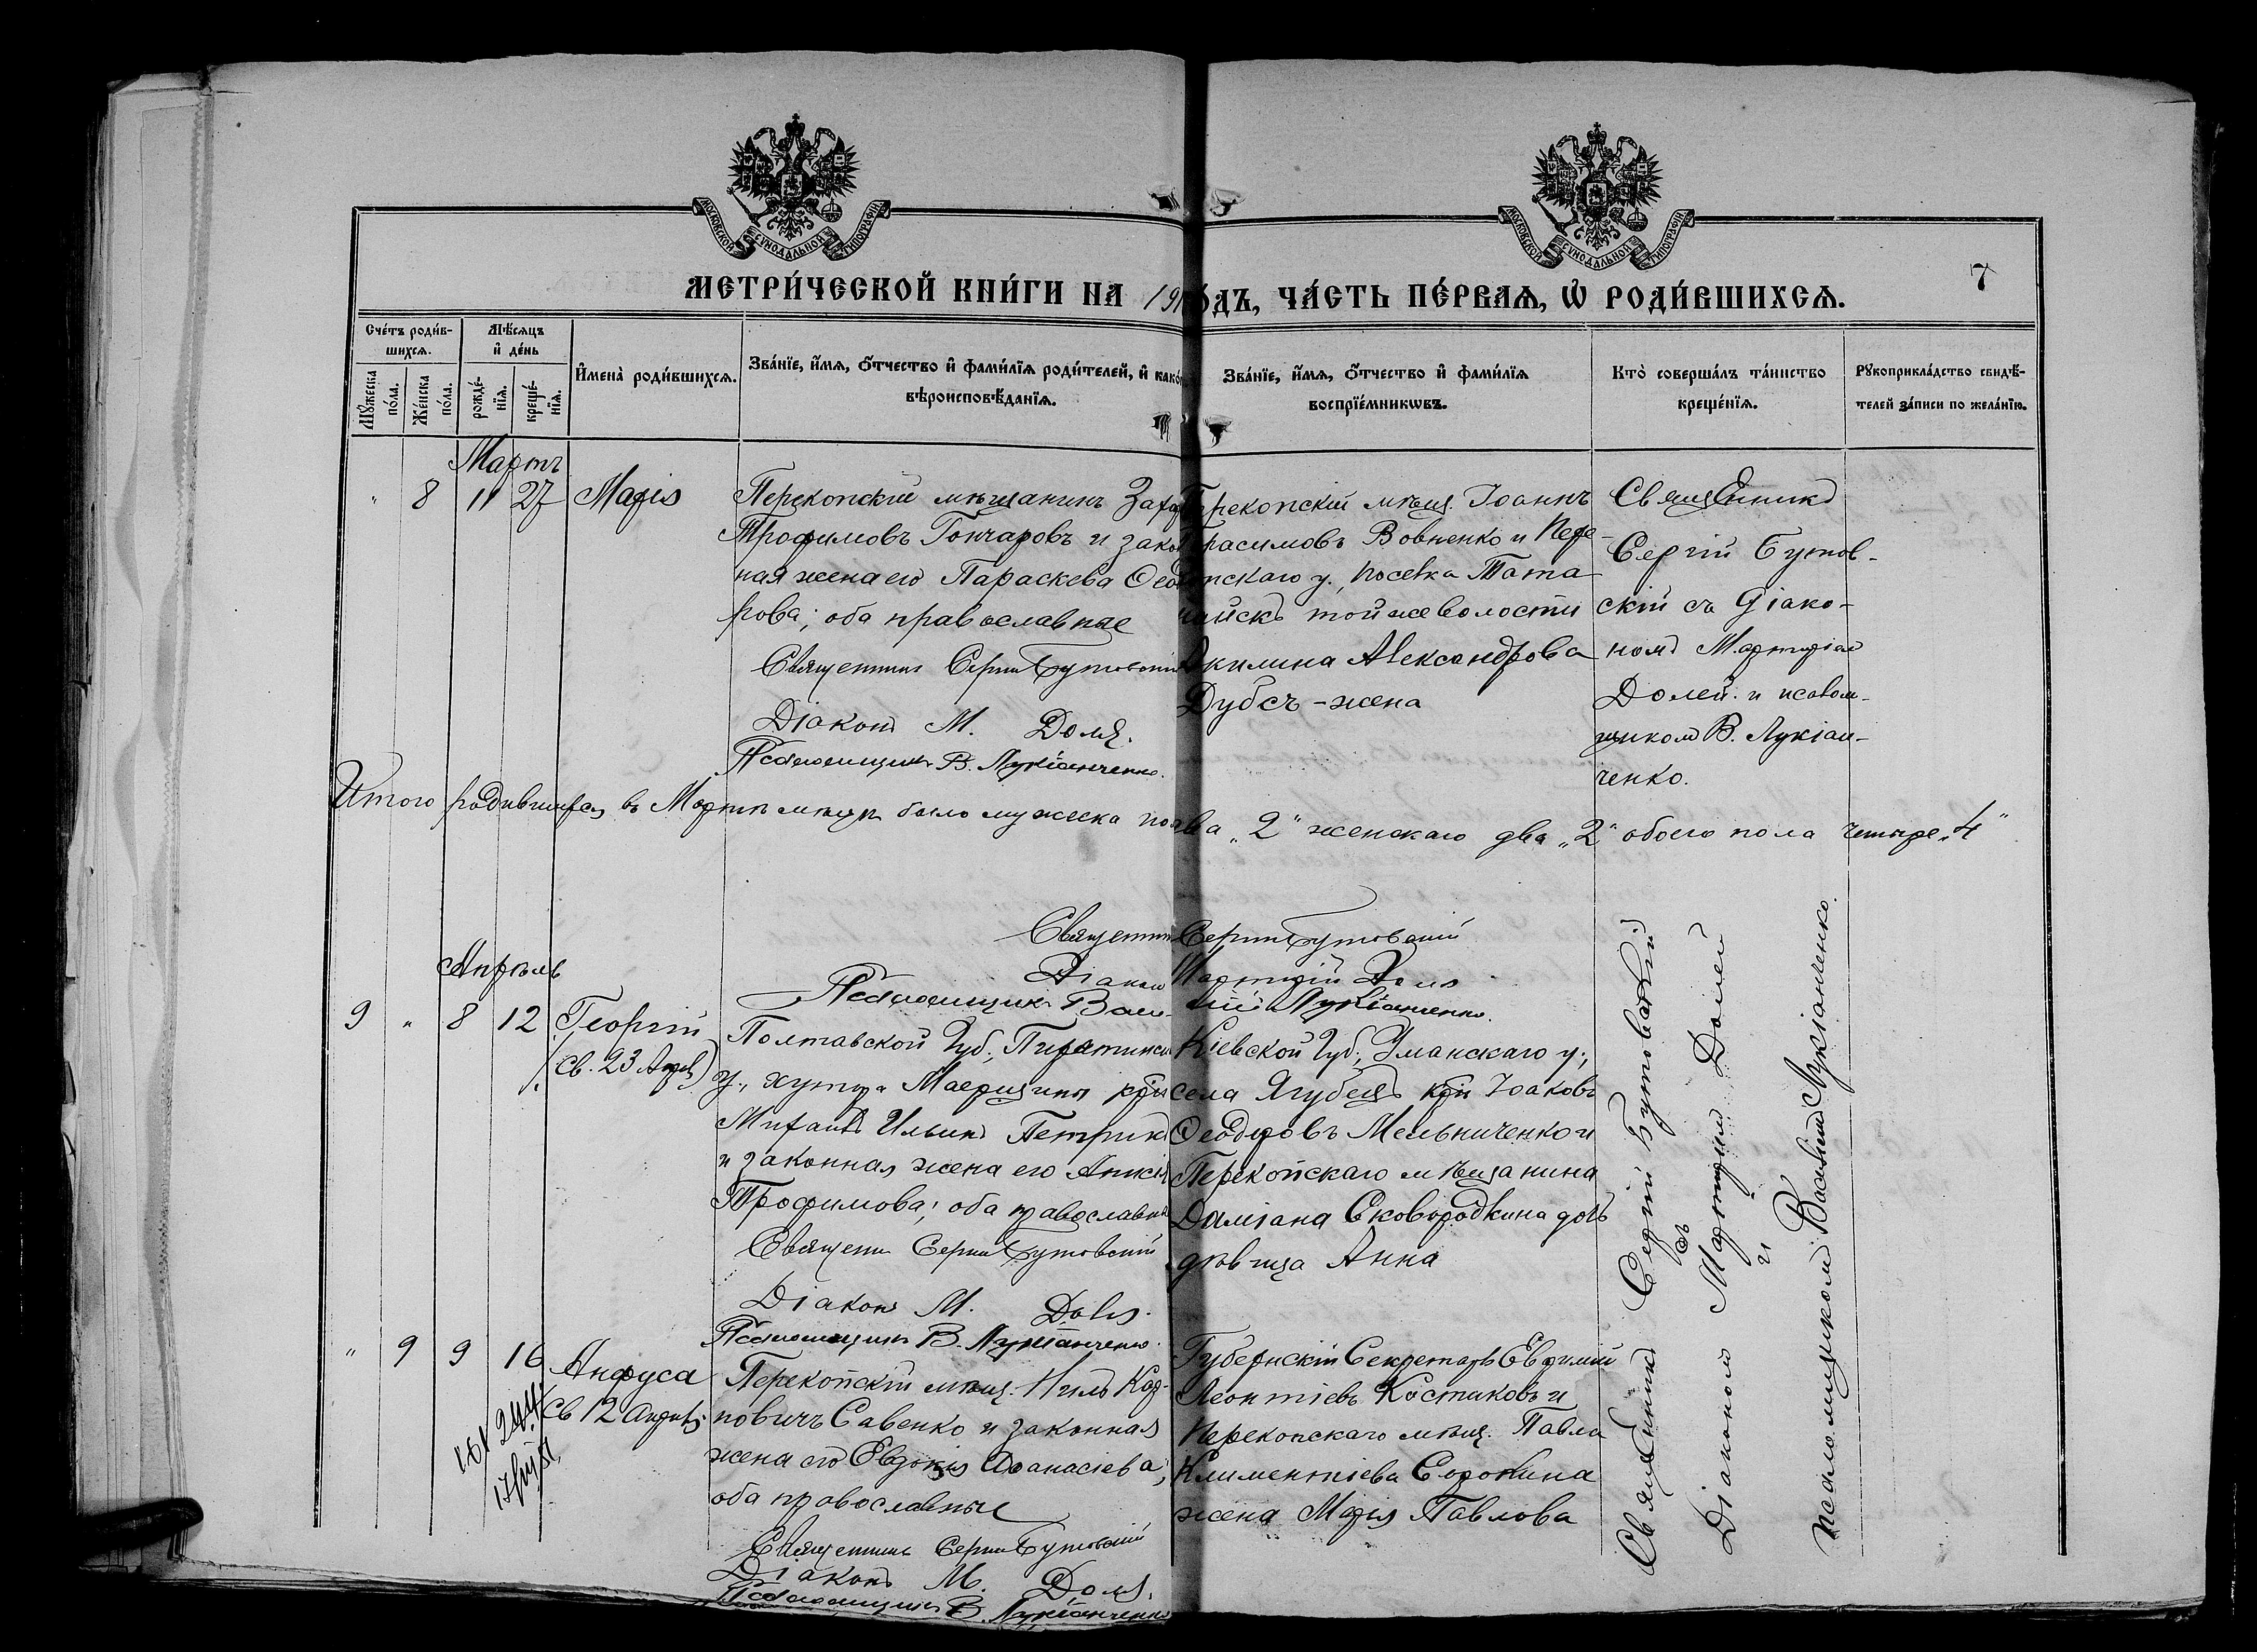 МОСКОВСКОЙ СѴНОДАЛЬНОЙ ТИПОГРАФІИ
МОСКОВСКОЙ СѴНОДАЛЬНОЙ ТИПОГРАФІИ
7
МЕТРИ́ЧЕСКОЙ КНИ́ГИ НА 191 ОДЪ, ЧА́СТЬ ПЕ́РВАѦ, Ѡ҆ РОДИ́ВШИХСѦ.
Сче́тъ роди́в-
шихсѧ.
Мꙋ́жеска по́ла.
Же́нска по́ла.
Мѣ́сѧцъ
и҆ де́нь
рожде́-
нїѧ.
креще́-
нїѧ.
И҆мена̀ роди́вшихсѧ.
Зва́нїе, и҆́мѧ, ѻ҆́тчество и҆ фами́лїѧ роди́телей, и҆ како́
вѣроисповѣ́данїѧ.
Зва́нїе, и҆́мѧ, ѻ҆́тчество и҆ фами́лїѧ
воспрїе́мникѡвъ.
Кто̀ соверша́лъ та́инство
креще́нїѧ.
Рꙋкоприкла́дство свидѣ́-
телей за́писи по жела́нїю.
Мартъ
" 8 11 27 Марія
Перекопскій мѣщанинъ Захар
Трофимовъ Гончаровъ и закон
ная жена его Параскева Ѳеод
рова; оба православные
Священникъ Сергій Бутовскій
Діаконъ М. Доля.
Псаломщикъ В. Лукіанченко.
Перекопскій мѣщ. Іоаннъ
расимовъ Вовненко и Пере-
опскаго у. поселка Тата
найскъ той же волости
Акилина Александрова
Дубсъ - жена
Священникъ
Сергій Бутов-
скій съ Діако-
номъ Мартиріем
Долей и псалом-
щиком В. Лукіан-
ченко.
Итого родившихся въ Мартѣ мѣсяцѣ было мужеска пола два „2" женскаго два „2" обоего пола четыре „4"
Священник Сергій Бутовскій
Діакон Мартирій Доля
Псаломщикъ Васи лій Лукіанченко.
Апрѣль
9 " 8 12 Георгій
(св. 23 Апрѣ)
Полтавской Губ., Пирятинск
у., хутора Маерщины крес
Михаилъ Ильинъ Петрикъ
и законная жена его Анисія
Трофимова; оба православные
Священн Сергій Бутовскій
Діаконъ М. Доля.
Псаломщикъ В. Лукіанченко.
Кіевской Губ., Уманскаго у.,
села Ягубецъ кр-нъ Іоаковъ
Ѳеодоровъ Мельниченко и
Перекопскаго мѣщанина
Даміана Сковородкина дочь
дѣвица Анна
" 9 9 16 Анфуса
Св 12 Апрѣл.
Перекопскій мѣщ. Нилъ Кар-
повичъ Савенко и законная
жена его Евдокія Аѳанасіева;
оба православные
Священникъ Сергій Бутовскій
Діаконъ М. Доля.
Псаломщикъ В. Лукіанченко
Губернскій Секретарь Евфимій
Леонтіевъ Костиковъ и
Перекопскаго мѣщ. Павла
Климентіева Сорокина
жена Марія Павлова
Священникъ Сергій Бутовскій
съ
Діакономъ Мартиріем Долей
и
псаломщикомъ Василіем Лукіанченко.